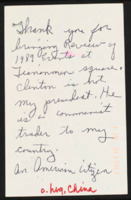 "Thank you for
bringing Review of
1989 Events at
Tiananmen square.
Clinton is not
my president. He
is a communist
trader to my
country
An American Citizen
O. Hiq, China